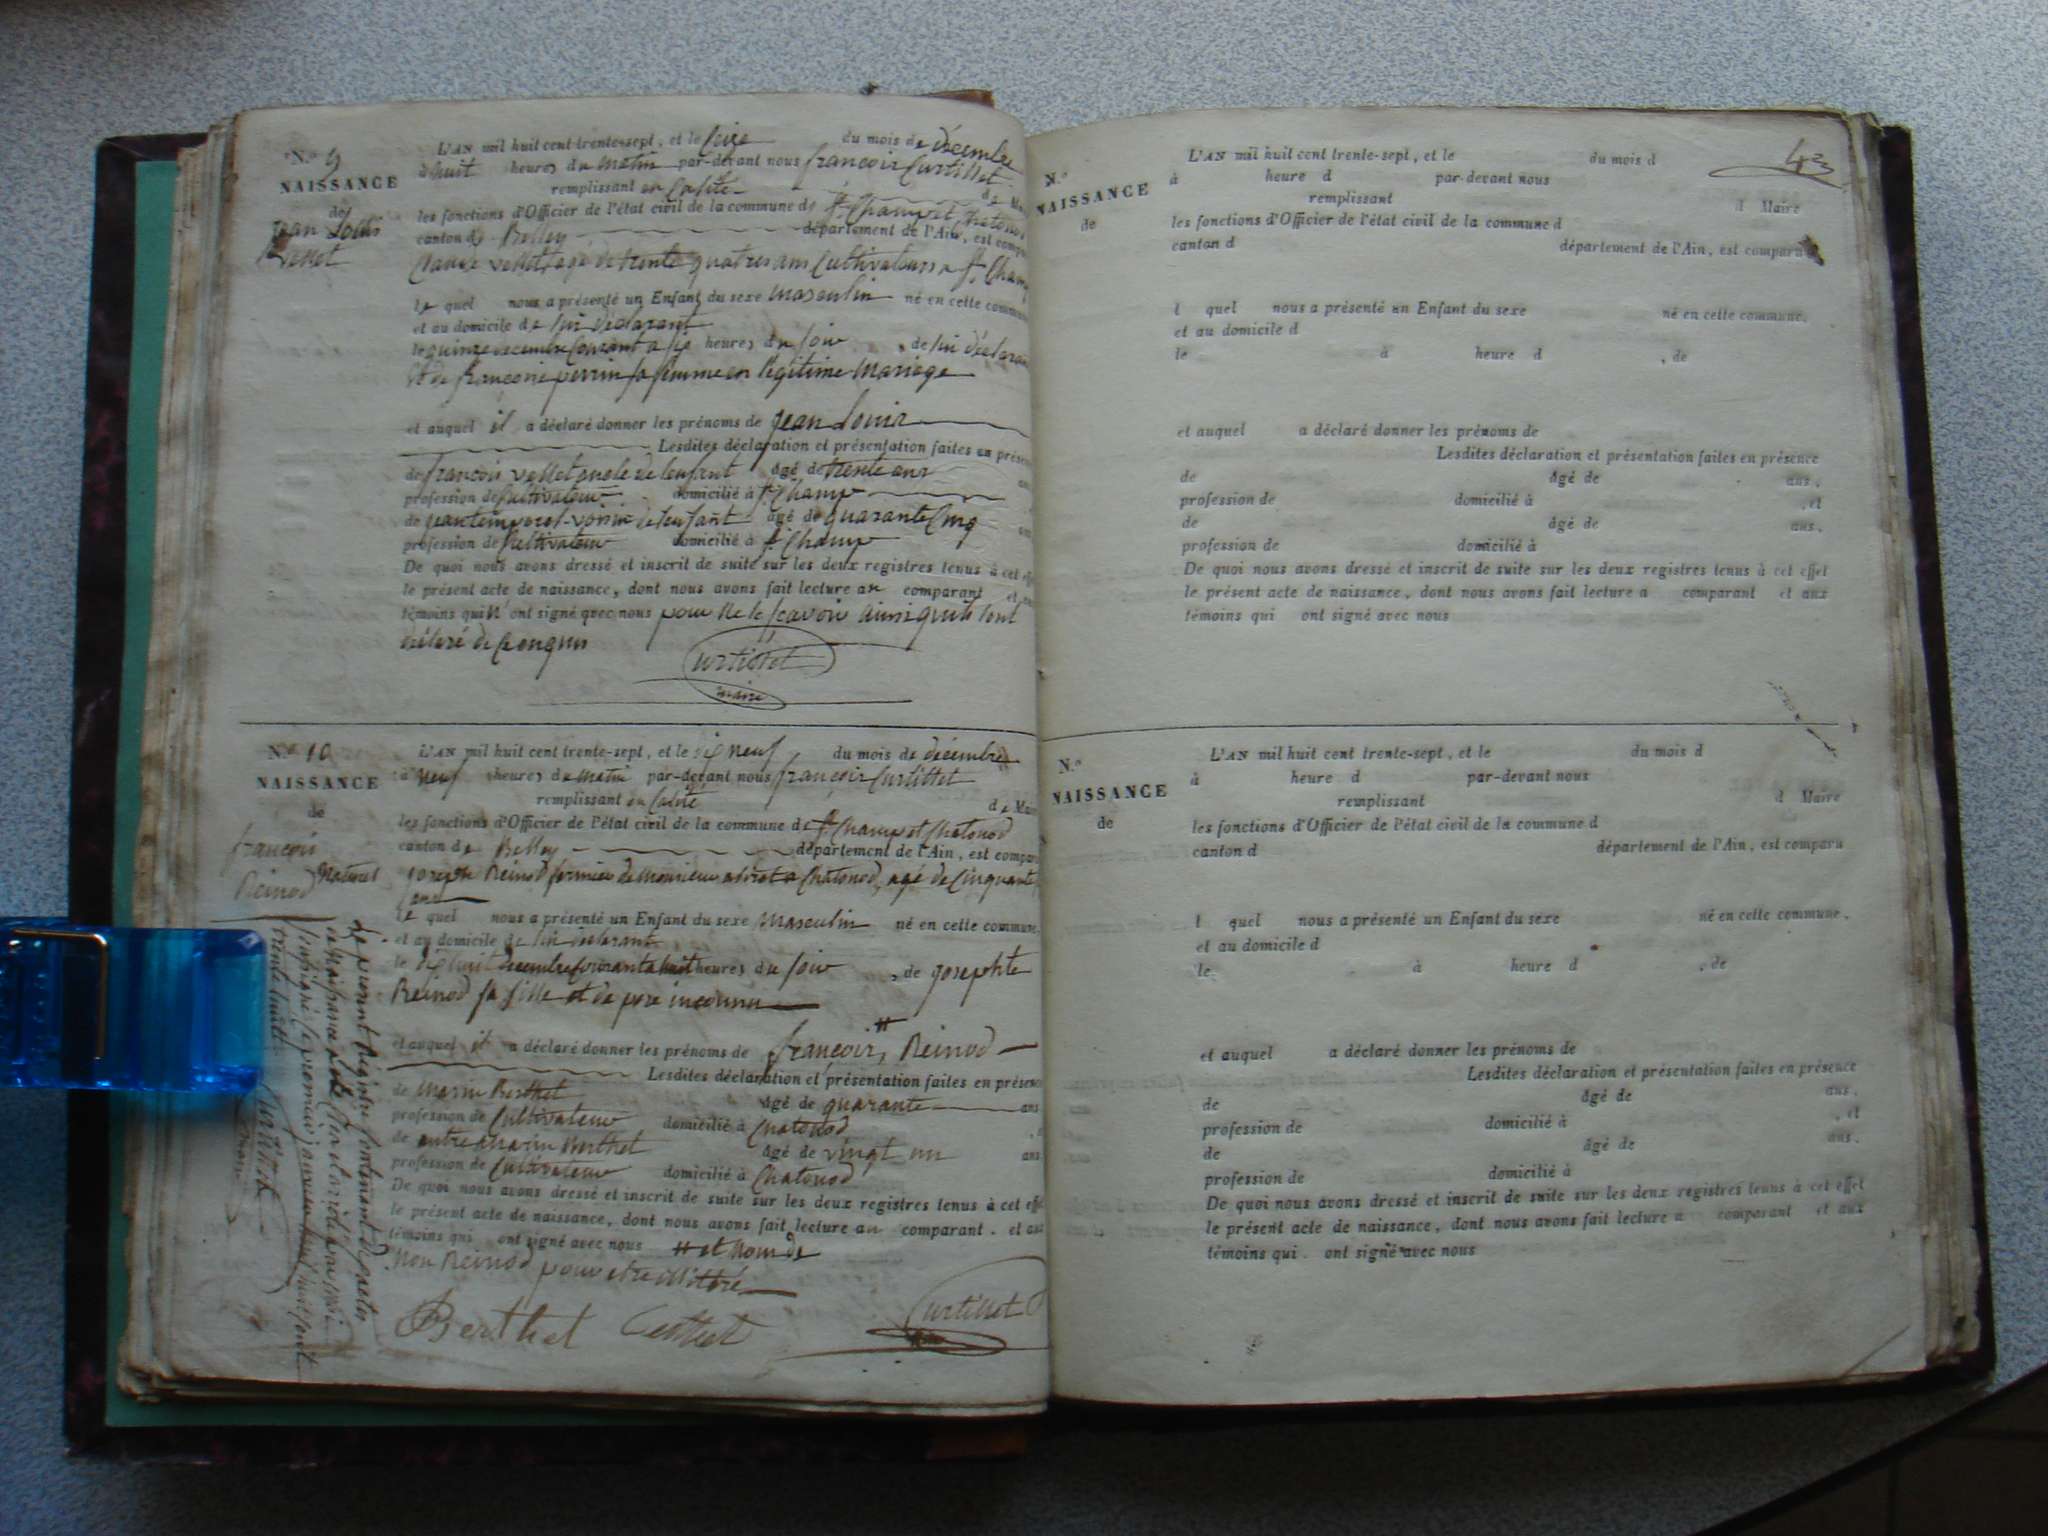 N.o 9
NAISSANCE
de
jean Louis
vellet
L'AN mil huit cent trente-sept, et le seize du mois de décembre
à huit heures du matin par-devant nous françois Curtillet
remplissant en calité de Maire
les fonctions d'Officier de l'état civil de la commune de St Champ et Chatonod
canton de Belley département de l'Ain, est comparu
Claude vellet agé de trente quatres ans Cultivateurs a St Champ
le quel nous a présenté un Enfant du sexe masculin né en cette commune
et au domicile de lui déclarant
le quinze decembre Courant a heures du soir, de lui déclarant
et de françoise perrin sa femme en légitime mariage
et auquel il a déclaré donner les prénoms de jean Louis
Lesdites déclaration et présentation faites en présence
de françois vellet oncle de lenfant âgé de trente ans
profession de Cultivateur domicilié à St Champ
de voisin de lenfant âgé de quarante Cinq ans
profession de Cultivateur domicilié à St Champ
De quoi nous avons dressé et inscrit de suite sur les deux registres tenus à cet effet
le présent acte de naissance, dont nous avons fait lecture au comparant et aux
témoins qui n'ont signé avec nous pour ne le scavoir ainsi quils lont
déclaré de ce enquis
Curtillet
maire
N.o 10
NAISSANCE
de
françois
Reinod Naturel
L'AN mil huit cent trente-sept, et le dix neuf du mois de décembre
à neuf heures du matin par-devant nous françois Curtillet
remplissant en calité de Maire
les fonctions d'Officier de l'état civil de la commune de St Champ et Chatonod
canton de Belley département de l'Ain, est comparu
joseph Reinod fermier de monsieur a Chatonod, agé de Cinquante
ans
le quel nous a présenté un Enfant du sexe Masculin né en cette commune,
et au domicile de lui déclarant
le dix huit decembre courant a huit heures du soir, de josephte
Reinod sa fille et de pere inconnu
et auquel il a déclaré donner les prénoms de françois, Reinod
Lesdites déclaration et présentation faites en présence
de marin Berthet âgé de quarante ans
profession de Cultivateur domicilié à Chatonod
de autre marin Berthet âgé de vingt un ans
profession de Cultivateur domicilié à Chatonod
De quoi nous avons dressé et inscrit de suite sur les deux registres tenus à cet effet
le présent acte de naissance, dont nous avons fait lecture au comparant. et aux
témoins qui ont signé avec nous et nom de
non Reinod pour etre illitéré
Berthet Berthet Curtillet
Le present Registre Contenant dix actes
de Naissance a été Clos et arrêté par nous
soussigné le premier janvier mil huit cent
trente huit
Curtillet
maire
43
N.o
NAISSANCE
de
L'AN mil huit cent trente-sept, et le du mois d
à heure d par-devant nous
remplissant d Maire
les fonctions d'Officier de l'état civil de la commune d
canton d département de l'Ain, est comparu
l quel nous a présenté un Enfant du sexe né en cette commune,
et au domicile d
le à heure d , de
et auquel a déclaré donner les prénoms de
Lesdites déclaration et présentation faites en présence
de âgé de ans,
profession de domicilié à , et
de âgé de ans,
profession de domicilié à
De quoi nous avons dressé et inscrit de suite sur les deux registres tenus à cet effet
le présent acte de naissance, dont nous avons fait lecture a comparant et aux
témoins qui ont signé avec nous
N.o
NAISSANCE
de
L'AN mil huit cent trente-sept, et le du mois d
à heure d par-devant nous
remplissant d Maire
les fonctions d'Officier de l'état civil de la commune d
canton d département de l'Ain, est comparu
l quel nous a présenté un Enfant du sexe né en cette commune,
et au domicile d
le à heure d , de
et auquel a déclaré donner les prénoms de
Lesdites déclaration et présentation faites en présence
de âgé de ans,
profession de domicilié à , et
de âgé de ans.
profession de domicilié à
De quoi nous avons dressé et inscrit de suite sur les deux registres tenus à cet effet
le présent acte de naissance, dont nous avons fait lecture a comparant et aux
témoins qui ont signé avec nous